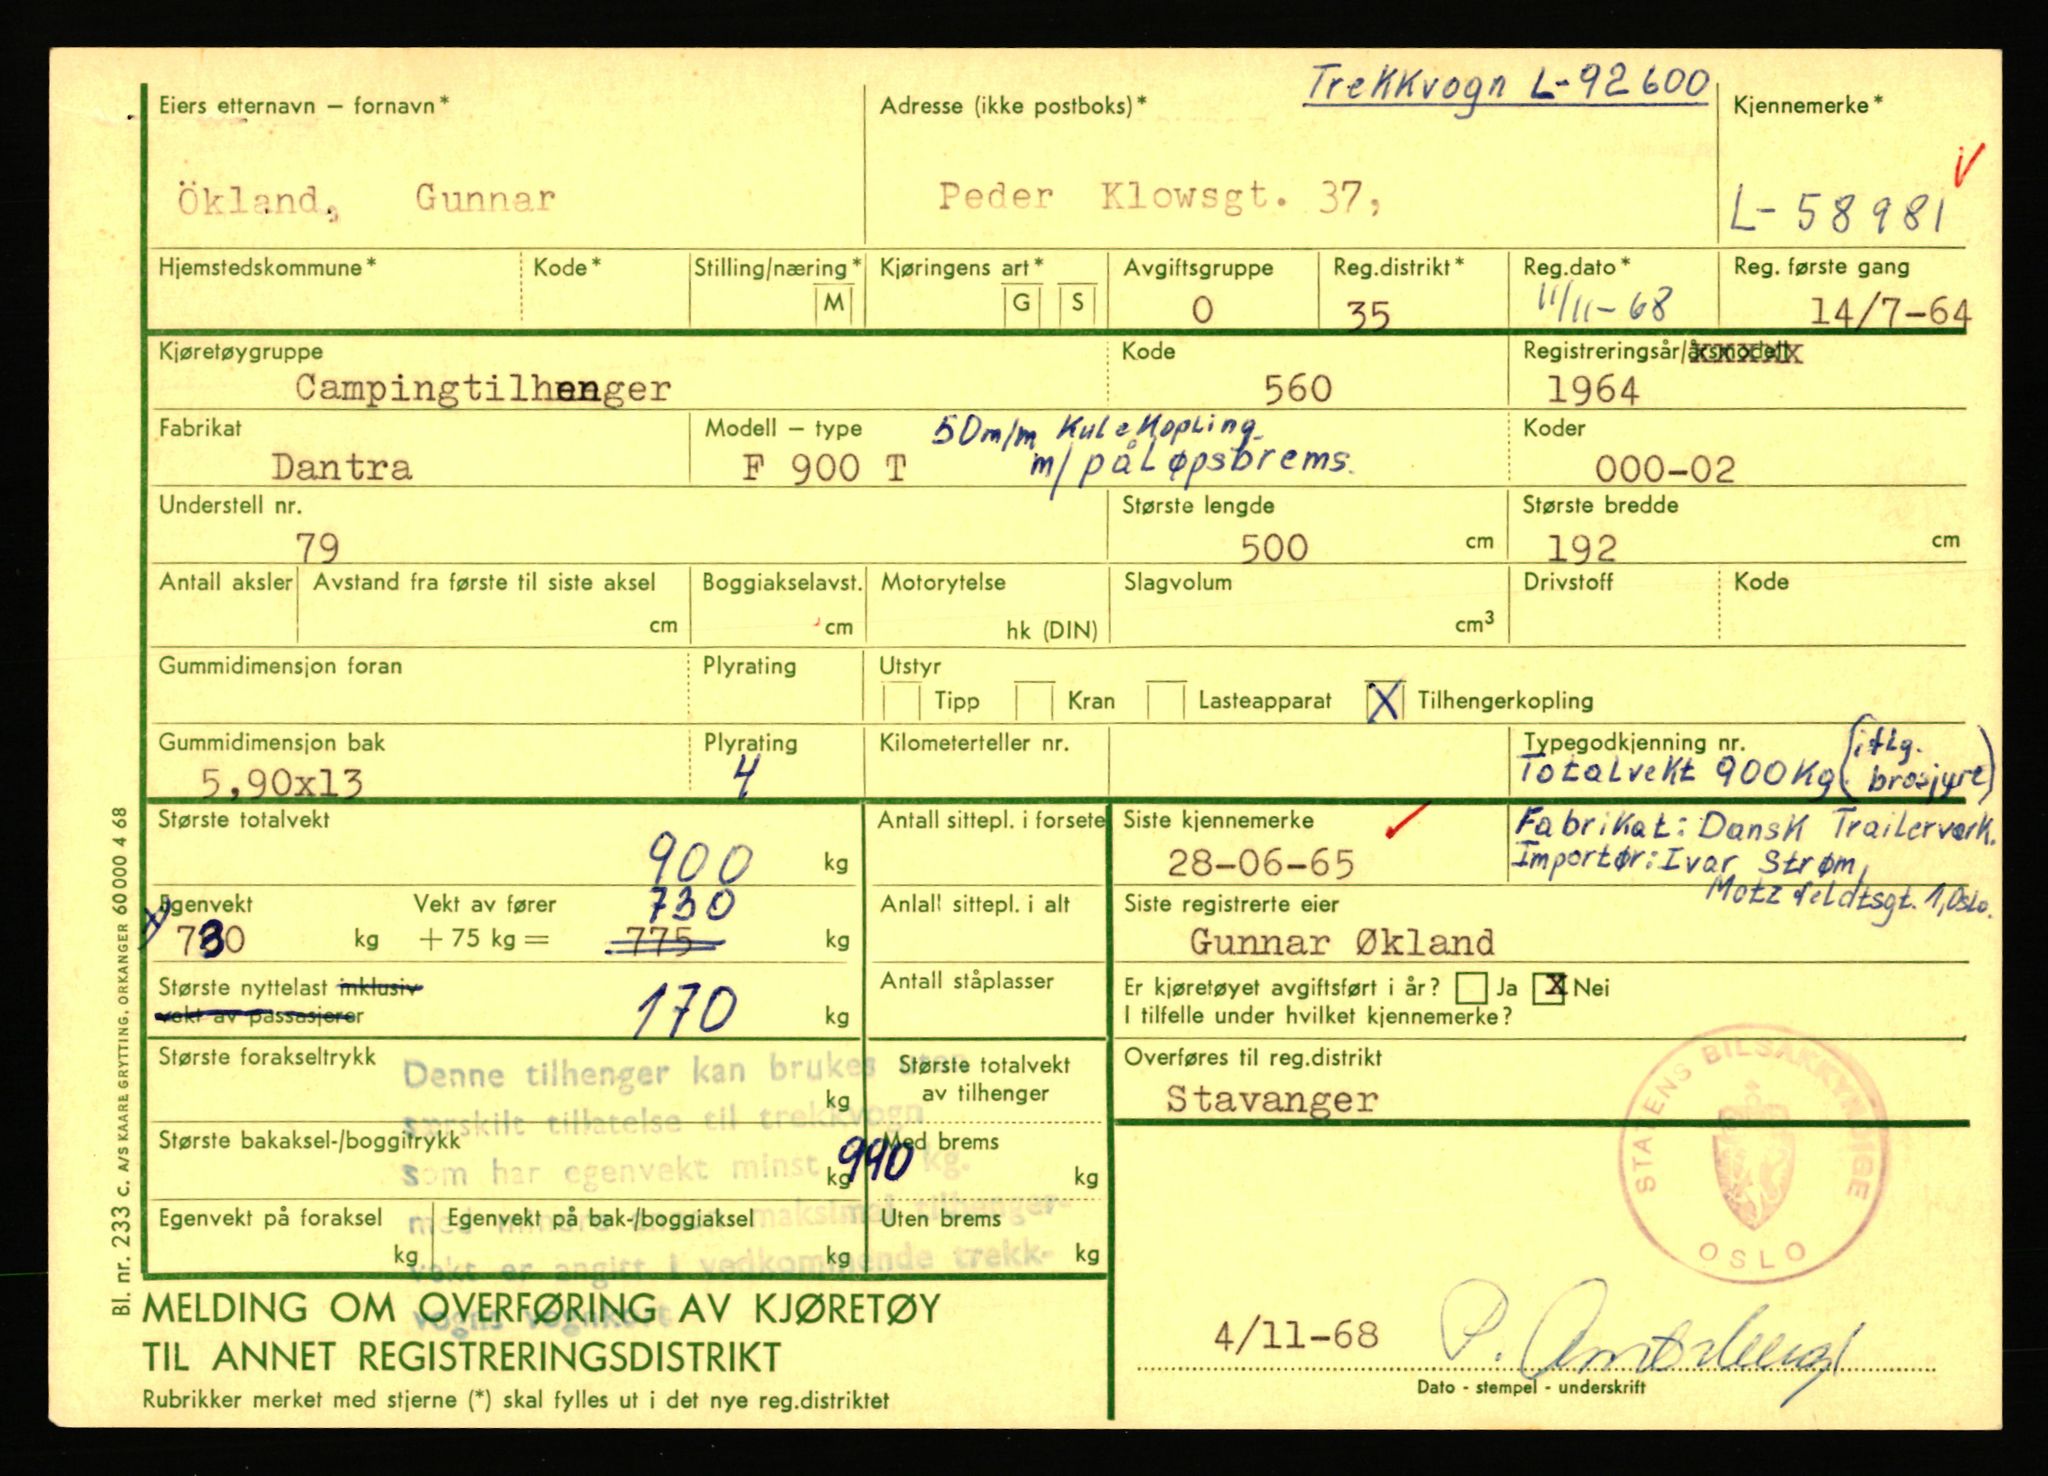 Trekkvogn L-92600
Eiers etternavn – fornavn*
Adresse (ikke postboks)*
Kjennemerke*
Ökland, Gunnar
Peder Klowsgt. 37,
L-58981
Hjemstedskommune*
Kode*
Stilling/næring*
M
Kjøringens art*
G
S
Avgiftsgruppe
0
Reg.distrikt*
35
Reg.dato*
11/11-68
Reg. første gang
14/7-64
Kjøretøygruppe
Campingtilhenger
Kode
560
Registreringsår/årsmodell
1964
Fabrikat
Dantra
Modell – type
F 900 T
50m/m Kulekopling
m/påløpsbrems.
Koder
000-02
Understell nr.
79
Største lengde
500 cm
Største bredde
192 cm
Antall aksler
Avstand fra første til siste aksel
cm
Boggiakselavst.
cm
Motorytelse
hk (DIN)
Slagvolum
cm³
Drivstoff
Kode
Gummidimensjon foran
Plyrating
Utstyr
Tipp
Kran
Lasteapparat
X Tilhengerkopling
Gummidimensjon bak
5,90x13
Plyrating
4
Kilometerteller nr.
Typegodkjenning nr.
Totalvekt 900Kg (iflg.
brosjyre)
Største totalvekt
900 kg
Antall sittepl. i forsete
Siste kjennemerke
28-06-65
Fabrikat: Dansk Trailerværk.
Importør: Ivar Strøm,
Motzfeldtsgt. 1, Oslo.
Egenvekt
730 kg
Vekt av fører
+ 75 kg =
730
775 kg
Anlall sittepl. i alt
Siste registrerte eier
Gunnar Økland
Største nyttelast inklusiv
vekt av passasjerer
170 kg
Antall ståplasser
Er kjøretøyet avgiftsført i år? Ja X Nei
I tilfelle under hvilket kjennemerke?
Største forakseltrykk
kg
Største totalvekt
av tilhenger
Overføres til reg.distrikt
Stavanger
Denne tilhenger kan brukes uten
særskilt tillatelse til trekkvogn
som har egenvekt minst 990 kg.
med mindre annen maksimal tilhenger-
vekt er angitt i vedkommende trekk-
vogns vognkort
Største bakaksel-/boggitrykk
kg
Med brems
kg
Egenvekt på foraksel
kg
Egenvekt på bak-/boggiaksel
kg
Uten brems
kg
STATENS BILSAKKYNDIGE
OSLO
MELDING OM OVERFØRING AV KJØRETØY
TIL ANNET REGISTRERINGSDISTRIKT
Rubrikker merket med stjerne (*) skal fylles ut i det nye reg.distriktet
4/11-68
Dato - stempel - underskrift
Bl. nr. 233 c. A/S KAARE GRYTTING, ORKANGER 60 000 4 68